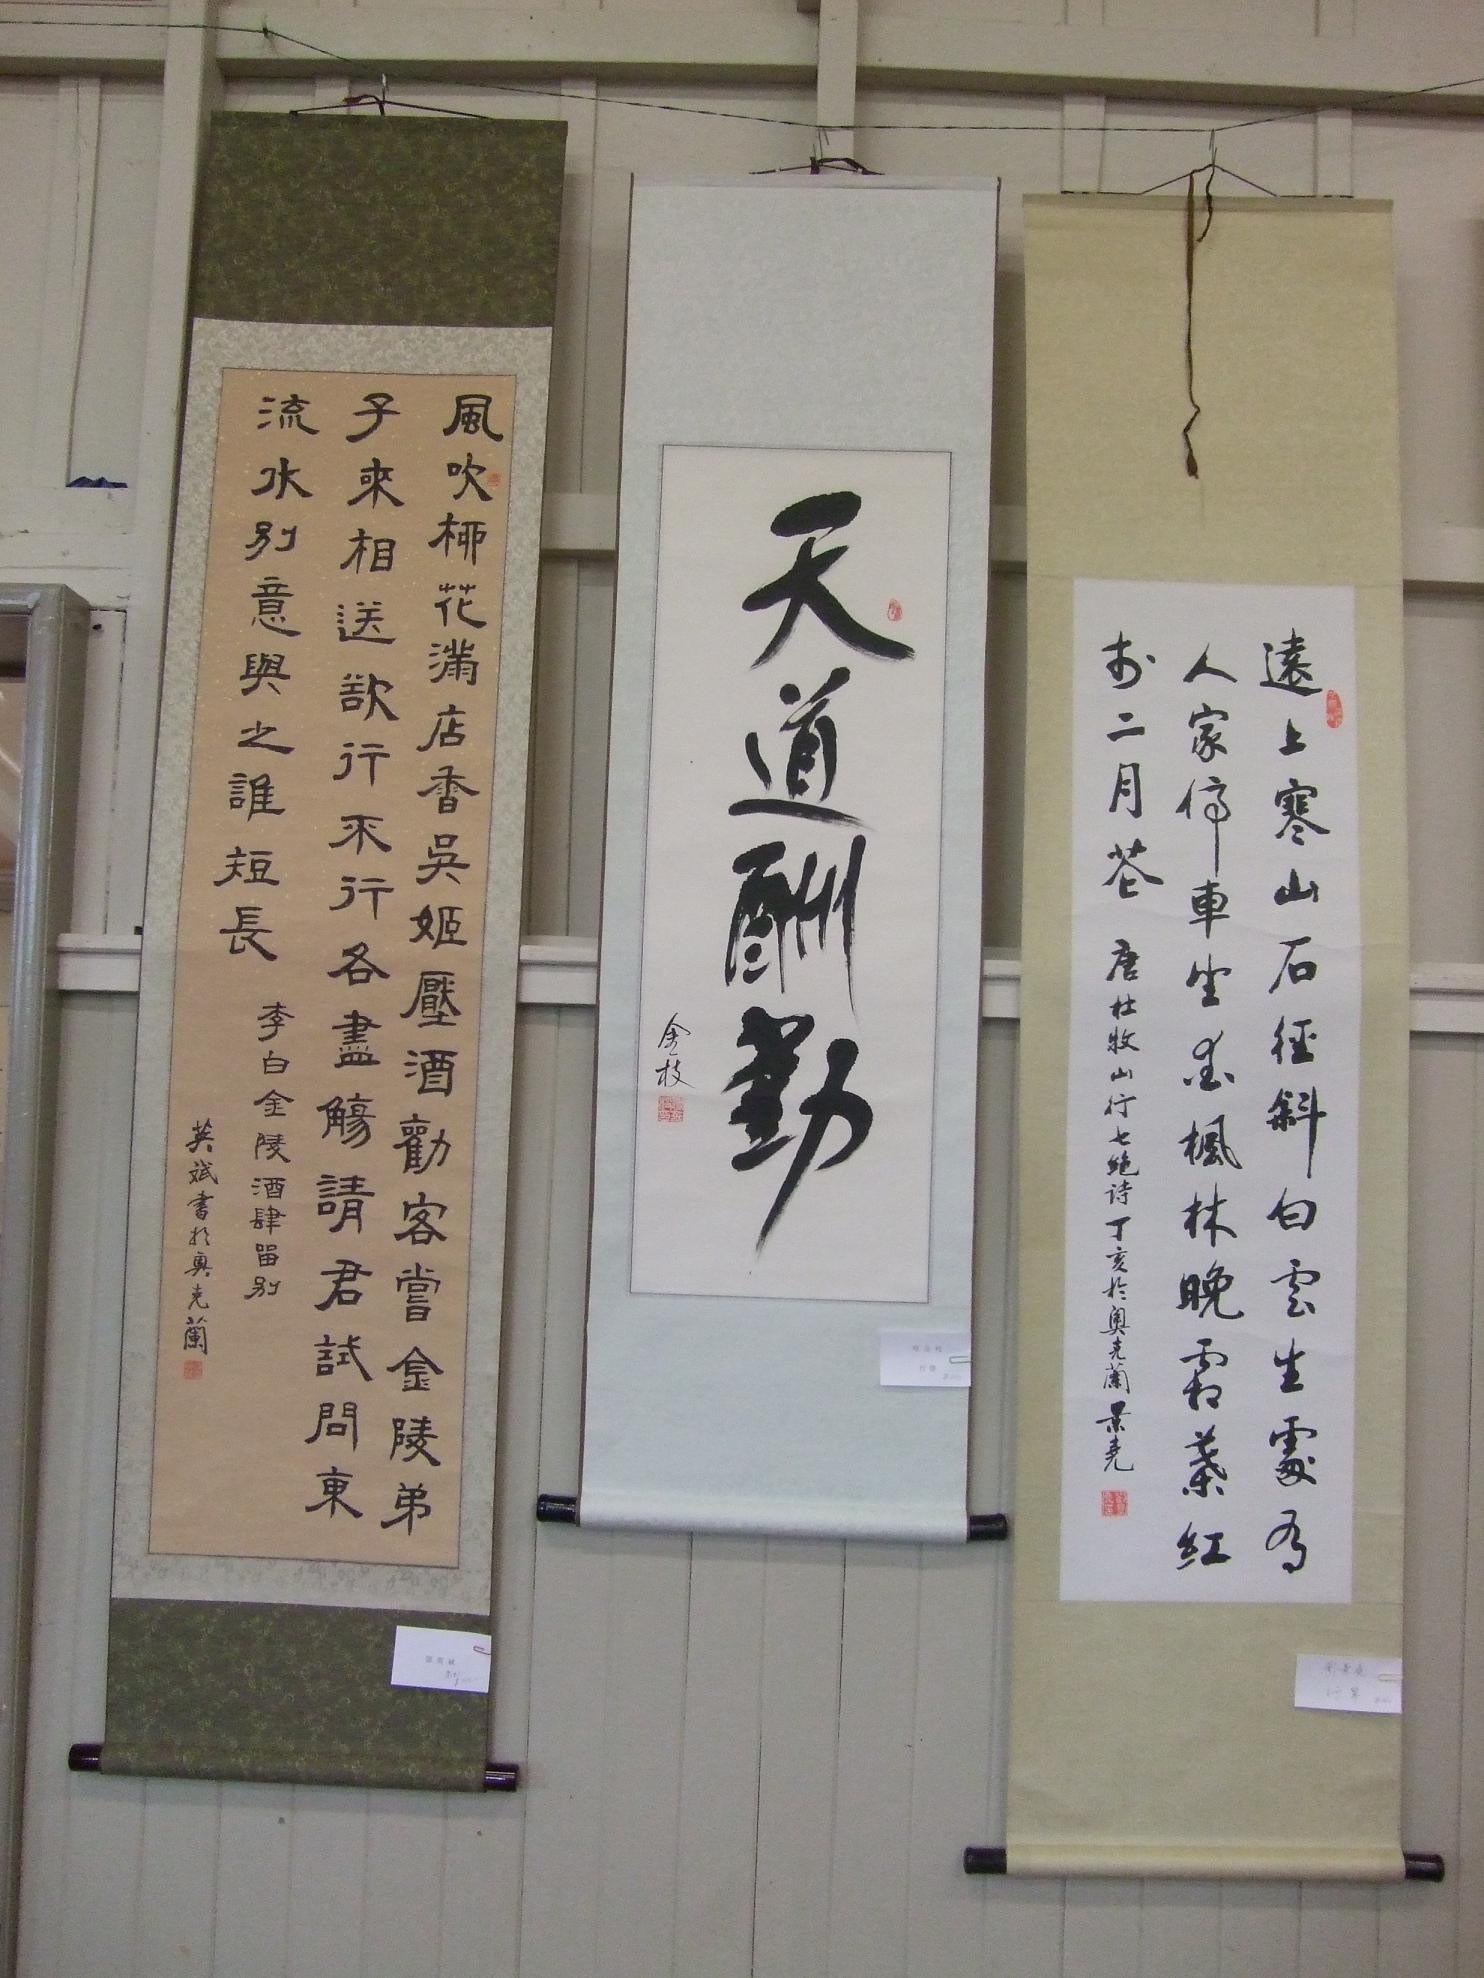 風吹柳花滿店香吳姬壓酒勸客嘗金陵弟
子來相送欲行不行各盡觴請君試問東
流水別意與之誰短長 李白金陵酒肆留別
英斌書於奧克蘭
天道酬勤
金枝
遠上寒山石徑斜白雲生處有
人家停車坐愛楓林晚霜葉紅
於二月花 唐杜牧山行七絕诗丁亥於奧克蘭景堯